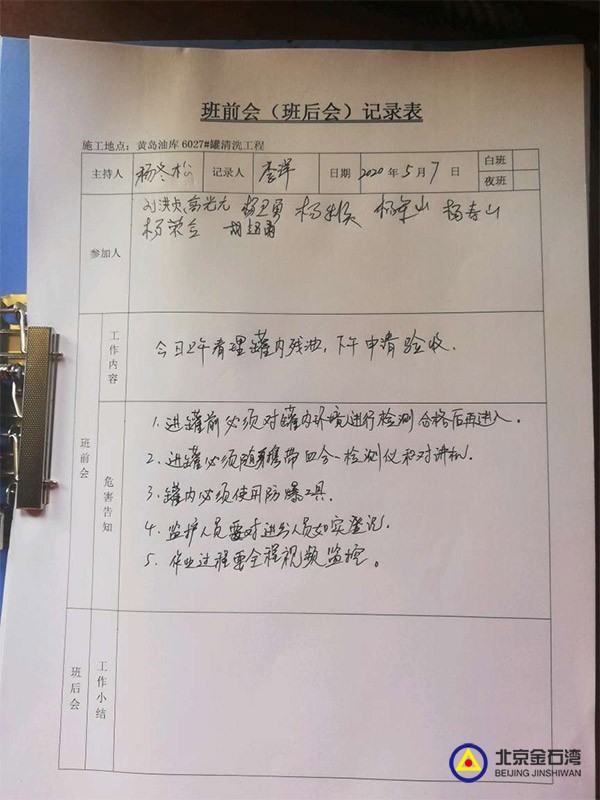 班前会（班后会）记录表
施工地点：黄岛油库 6027#罐清洗工程
主持人 杨冬松 记录人 李洋 日期 2020 年 5 月 7 日 白班
夜班
参加人
工作内容 今日上午清理罐内残油，下午申请验收.
班前会
危害告知
1. 进罐前必须对罐内环境进行检测合格后再进入.
2. 进罐必须随身携带四合一检测仪和对讲机.
3. 罐内必须使用防爆工具.
4. 监护人员要对进出人员如实登记.
5. 作业过程要全程视频监控。
班后会
工作小结
北京金石湾
BEIJING JINSHIWAN